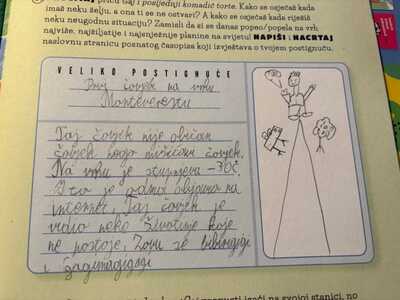 pričaj i posljednji komadić torte. Kako se osjećaš kada
imaš neku želju, a ona ti se ne ostvari? A kako se osjećaš kada riješiš
neku neugodnu situaciju? Zamisli da si se danas popeo/popela na vrh
najviše, najšiljatije i najsnježnije planine na svijetu! NAPIŠI I NACRTAJ
naslovnu stranicu poznatog časopisa koji izvještava o tvojem postignuću.
VELIKO POSTIGNUĆE
Prvi čovjek na vrhu
Monteveresta
Taj čovjek nije običan
čovjek nego čovjek.
Na vrhu je -30°C.
I to je odma objavio na
internet. Taj čovjek je
vidio neke životinje koje
ne postoje. Zovu se
i
izaći na svojoj stanici, no